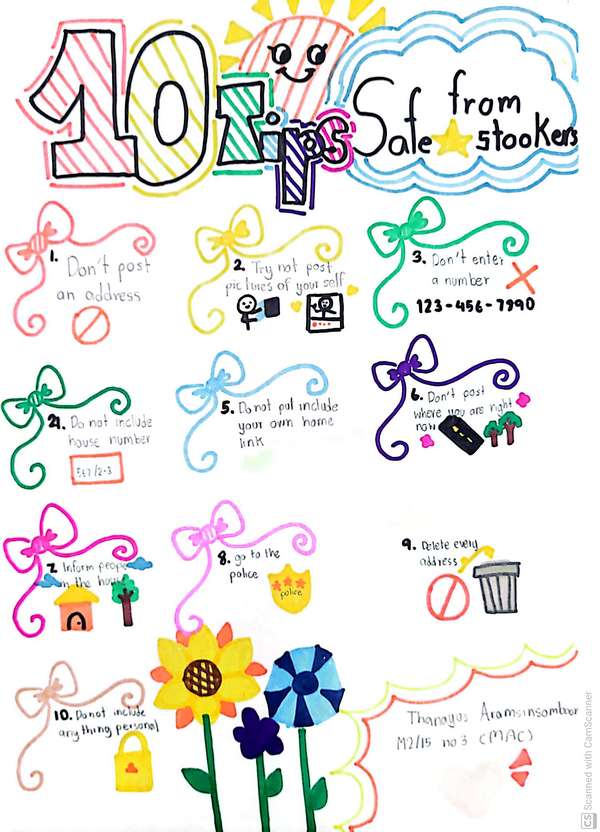 10 Tips
Safe from
stookers
1. Don't post
an address
2. Try not post
pictures of your self
3. Don't enter
a number
123-456-7990
4. Do not include
house number
567/2-3
5. Do not put include
your own home
link
6. Don't post
where you are right
now
7. Inform people
in the house
8. go to the
police
police
9. Delete every
address
10. Do not include
any thing personal
M2/15 no 3 (MAC)
CS Scanned with CamScanner